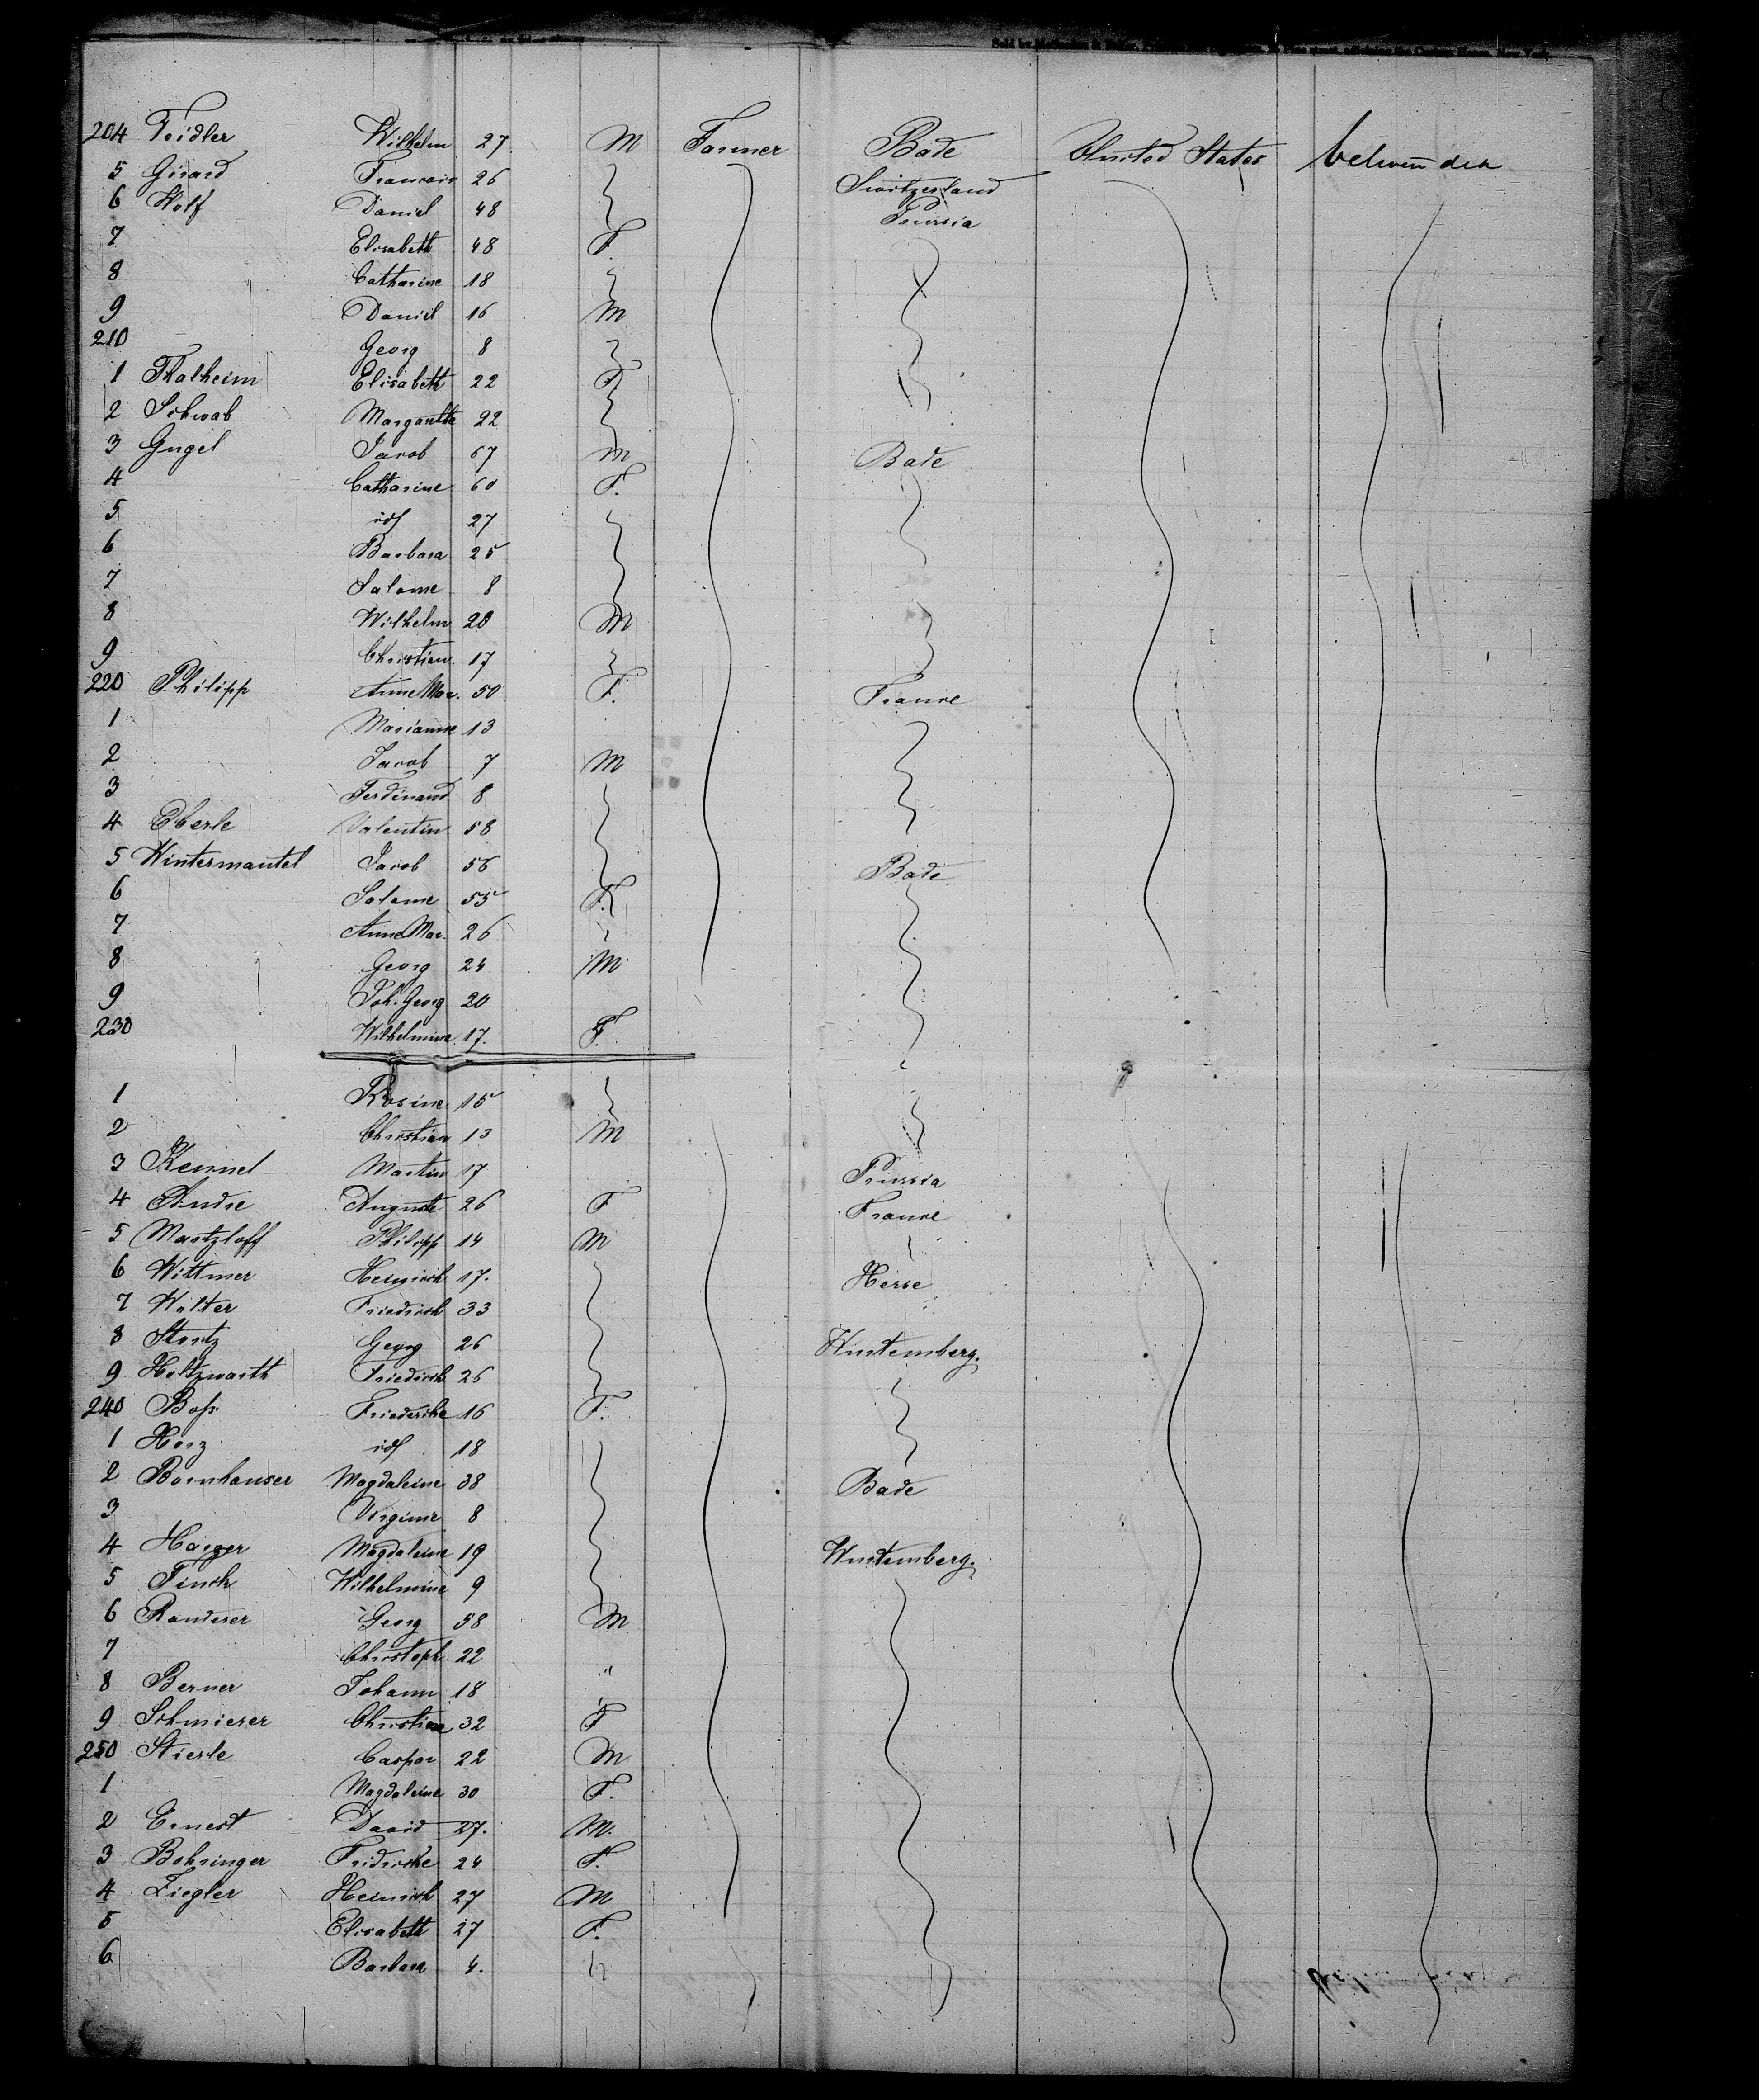 204 Feidler Wilhelm 27. M Farmer Bade United States between dek
5 Girard Francois 26 Switzerland
6 Wolf Daniel 48 Prussia
7 Elisabeth 48 F.
8 Catharine 18
9 Daniel 16 M
210 Georg 8
1 Thalheim Elisabeth 22 F
2 Schwab Margaretha 22
3 Gugel Jacob 67 M Bade
4 Catharine 60 F.
5 id 27
6 Barbara 25
7 Salome 8
8 Wilhelm 20 M
9 Christian 17
220 Philipp Anne Mar. 50 F. France
1 Marianne 13
2 Jacob 7 M
3 Ferdinand 8
4 Eberle Valentin 58
5 Wintermantel Jacob 56 Bade
6 Salome 55 F.
7 Anne Mar. 26
8 Georg 24 M
9 Joh. Georg 20
230 Wilhelmine 17. F.
1 Rosine 15
2 Christian 13 M
3 Kennel Martin 17 Prussia
4 Andre Auguste 26 F France
5 Martzloff Philipp 14 M
6 Wittmer Heinrich 17. Hesse
7 Walter Friedrich 33
8 Stortz Georg 26 Wurtemberg.
9 Holtzwarth Friedrich 26
240 Boss Friedericke 16 F.
1 Horz id 18
2 Bornhauser Magdaleine 38 Bade
3 Virginie 8
4 Harzer Magdaleine 19 Wurtemberg.
5 Finch Wilhelmine 9
6 Randerer Georg 58 M
7 Christoph 22
8 Berner Johann 18 "
9 Schmierer Christian 32 F
250 Stierle Caspar 22 M
1 Magdaleine 30 F.
2 Ernest David 27. M.
3 Bohringer Fridricke 24 F.
4 Ziegler Heinrich 27 M
5 Elisabeth 27 F.
6 Barbara 4.